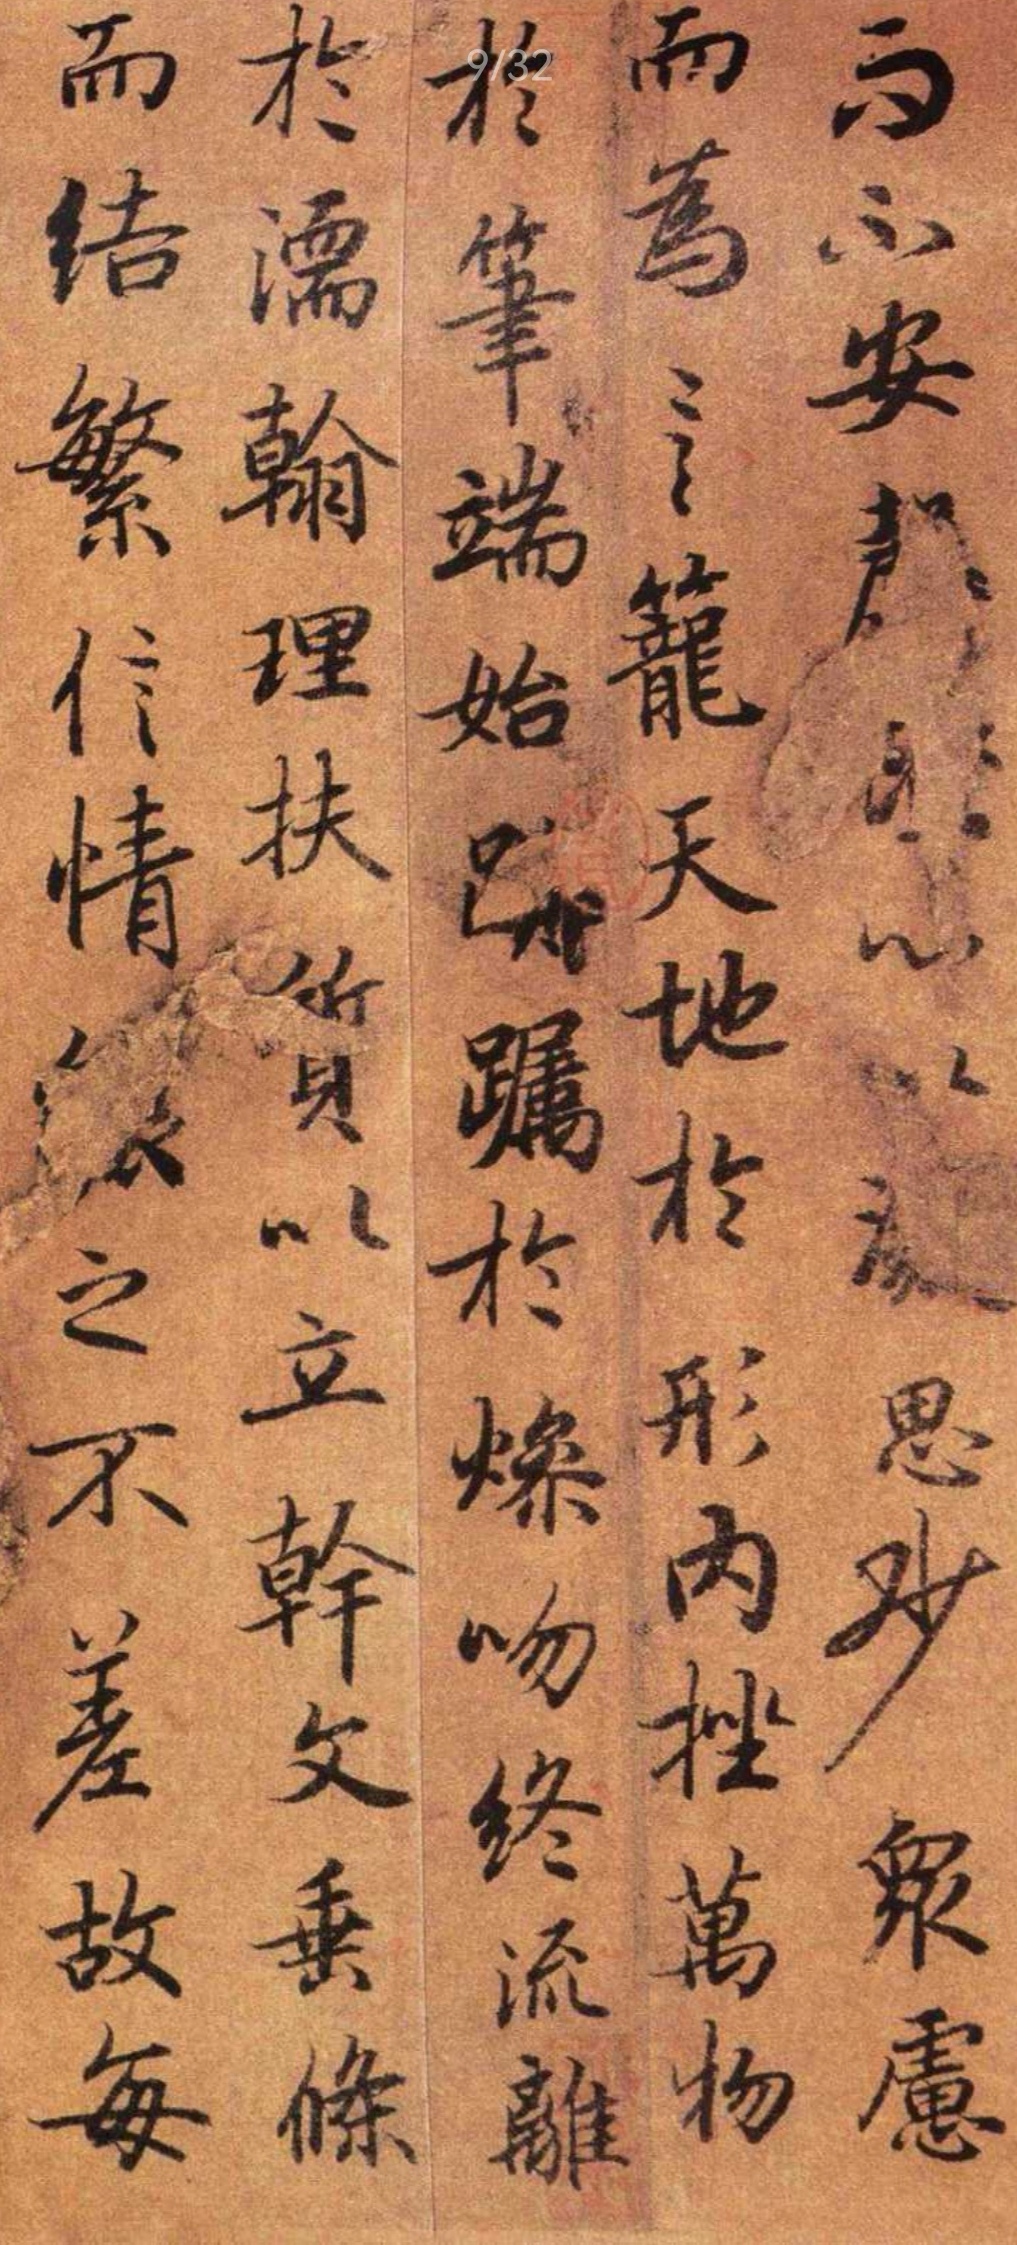 9/32
而不安罄心以思眇眾慮
而為言籠天地於形內挫萬物
於筆端始躑躅於燥吻終流離
於濡翰理扶質以立幹文垂條
而結繁信情之不差故每